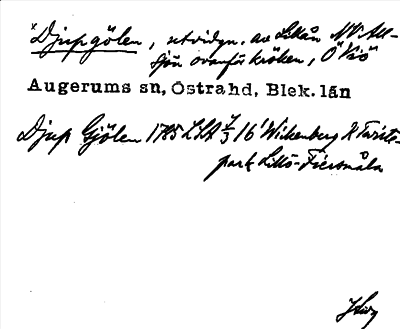 *Djupgölen, utvidgn. av Lillån NV All-
sjön ovanför kröken, Ö Vis
Augerums sn, Östra hd, Blek. län
Djup Gjölen 1785 LSA 16 Wikenberg X Twists-
park Lillö-Fiersmåla